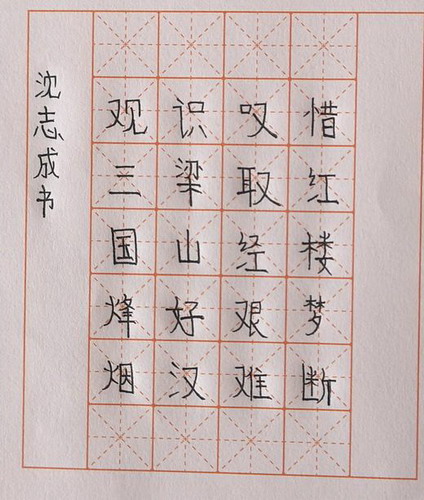 惜红楼梦断
叹取经艰难
识梁山好汉
观三国烽烟
沈志成书